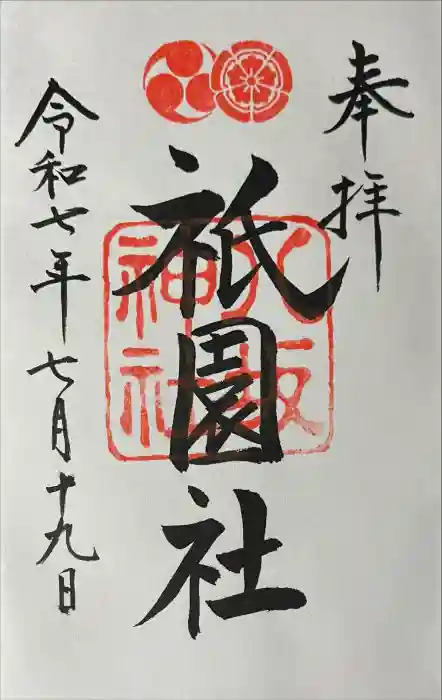 奉拝
八坂
神社
祇園社
令和七年七月十九日